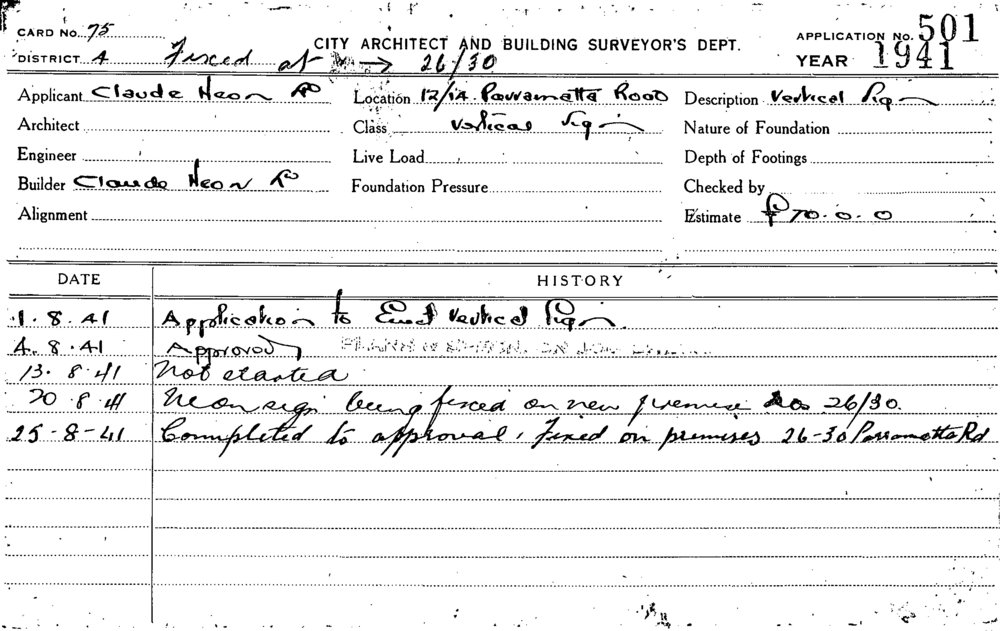 CARD No. 75
CITY ARCHITECT AND BUILDING SURVEYOR'S DEPT.
APPLICATION No. 501
DISTRICT A Fixed at → 26/30
YEAR 1941
Applicant Claude Neon Location 12/14 Parramatta Road Description Vertical Sign
Architect Class Vertical Sign Nature of Foundation
Engineer Live Load Depth of Footings
Builder Claude Neon Foundation Pressure Checked by
Alignment Estimate £70.0.0
DATE HISTORY
1.8.41 Application to Erect Vertical Sign.
4.8.41 Approved
13.8.41 Not started
20.8.41 Neon sign being fixed on new premise 26/30.
25-8-41 Completed to approval. Fixed on premises 26-30 Parramatta Rd